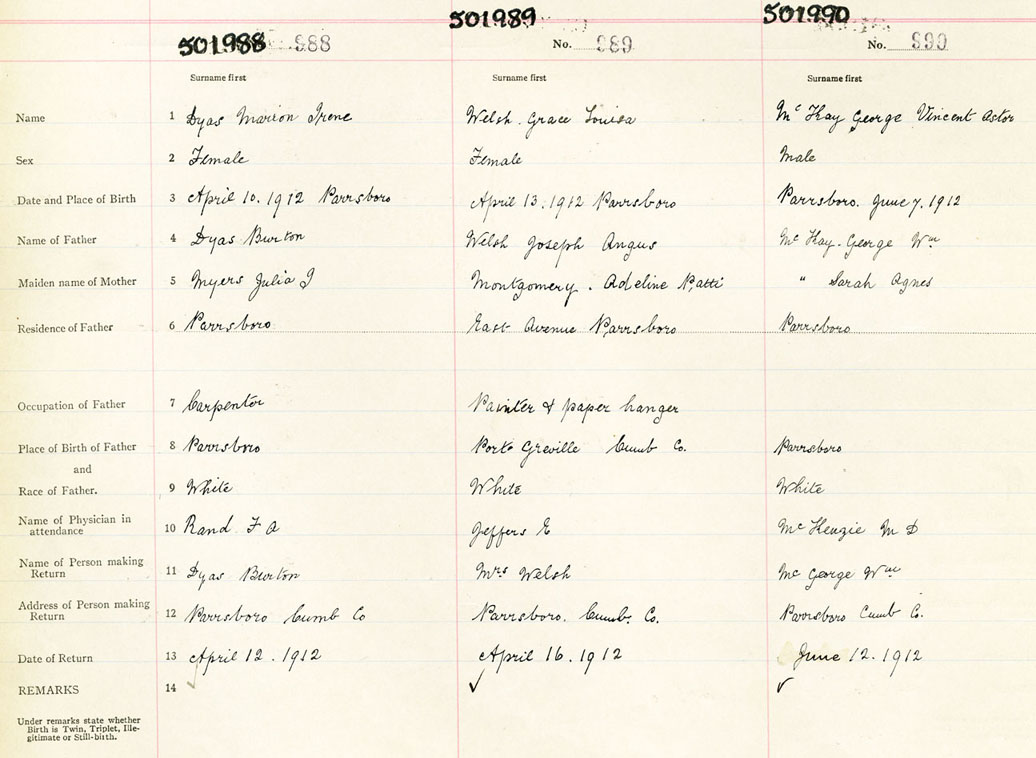 501988 988
501989
No. 989
501990
No. 990
Surname first Surname first Surname first
Name 1 Dyas Marion Irene Welsh. Grace Louisa McKay George Vincent Astor
Sex 2 Female Female Male
Date and Place of Birth 3 April 10. 1912 Parrsboro April 13. 1912 Parrsboro Parrsboro. June 7. 1912
Name of Father 4 Dyas Burton Welsh Joseph Angus McKay. George Wm
Maiden name of Mother 5 Myers Julia J Montgomery. Adeline Patti " Sarah Agnes
Residence of Father 6 Parrsboro East Avenue Parrsboro Parrsboro
Occupation of Father 7 Carpentor Painter & paper hanger
Place of Birth of Father 8 Parrsboro Port Greville Cumb Co. Parrsboro
and
Race of Father. 9 White White White
Name of Physician in
attendance 10 Rand F A Jeffers E McKenzie M D
Name of Person making
Return 11 Dyas Burton Mrs Welsh Mc George Wm
Address of Person making
Return 12 Parrsboro Cumb Co Parrsboro. Cumb. Co. Parrsboro Cumb Co.
Date of Return 13 April 12. 1912 April 16. 1912 June 12. 1912
REMARKS 14 ✓ ✓ ✓
Under remarks state whether
Birth is Twin, Triplet, Ille-
gitimate or Still-birth.